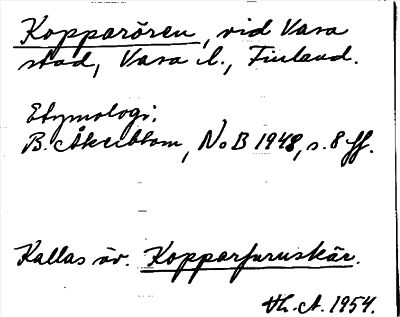 Kopparören, vid Vasa
stad, Vasa l., Finland.
Etymologi:
B. Åkerblom, NoB 1948, s. 8 ff.
Kallas äv. Kopparfuruskär.
Th. A. 1954.